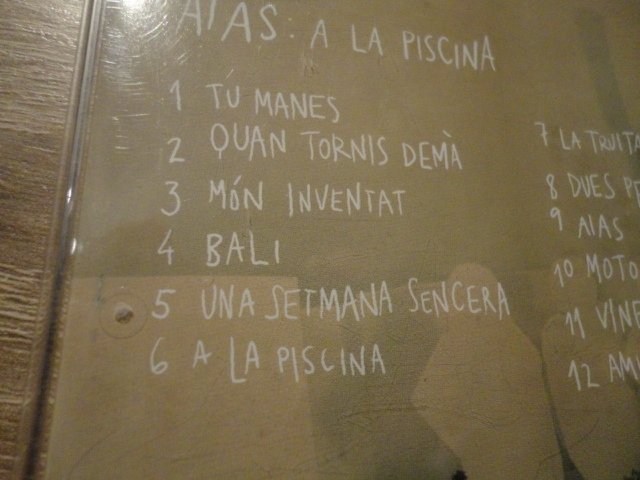 AIAS: A LA PISCINA
1 TU MANES
2 QUAN TORNIS DEMÀ
3 MÓN INVENTAT
4 BALI
5 UNA SETMANA SENCERA
6 A LA PISCINA
7 LA
8 DUES
9 AIAS
10
11
12